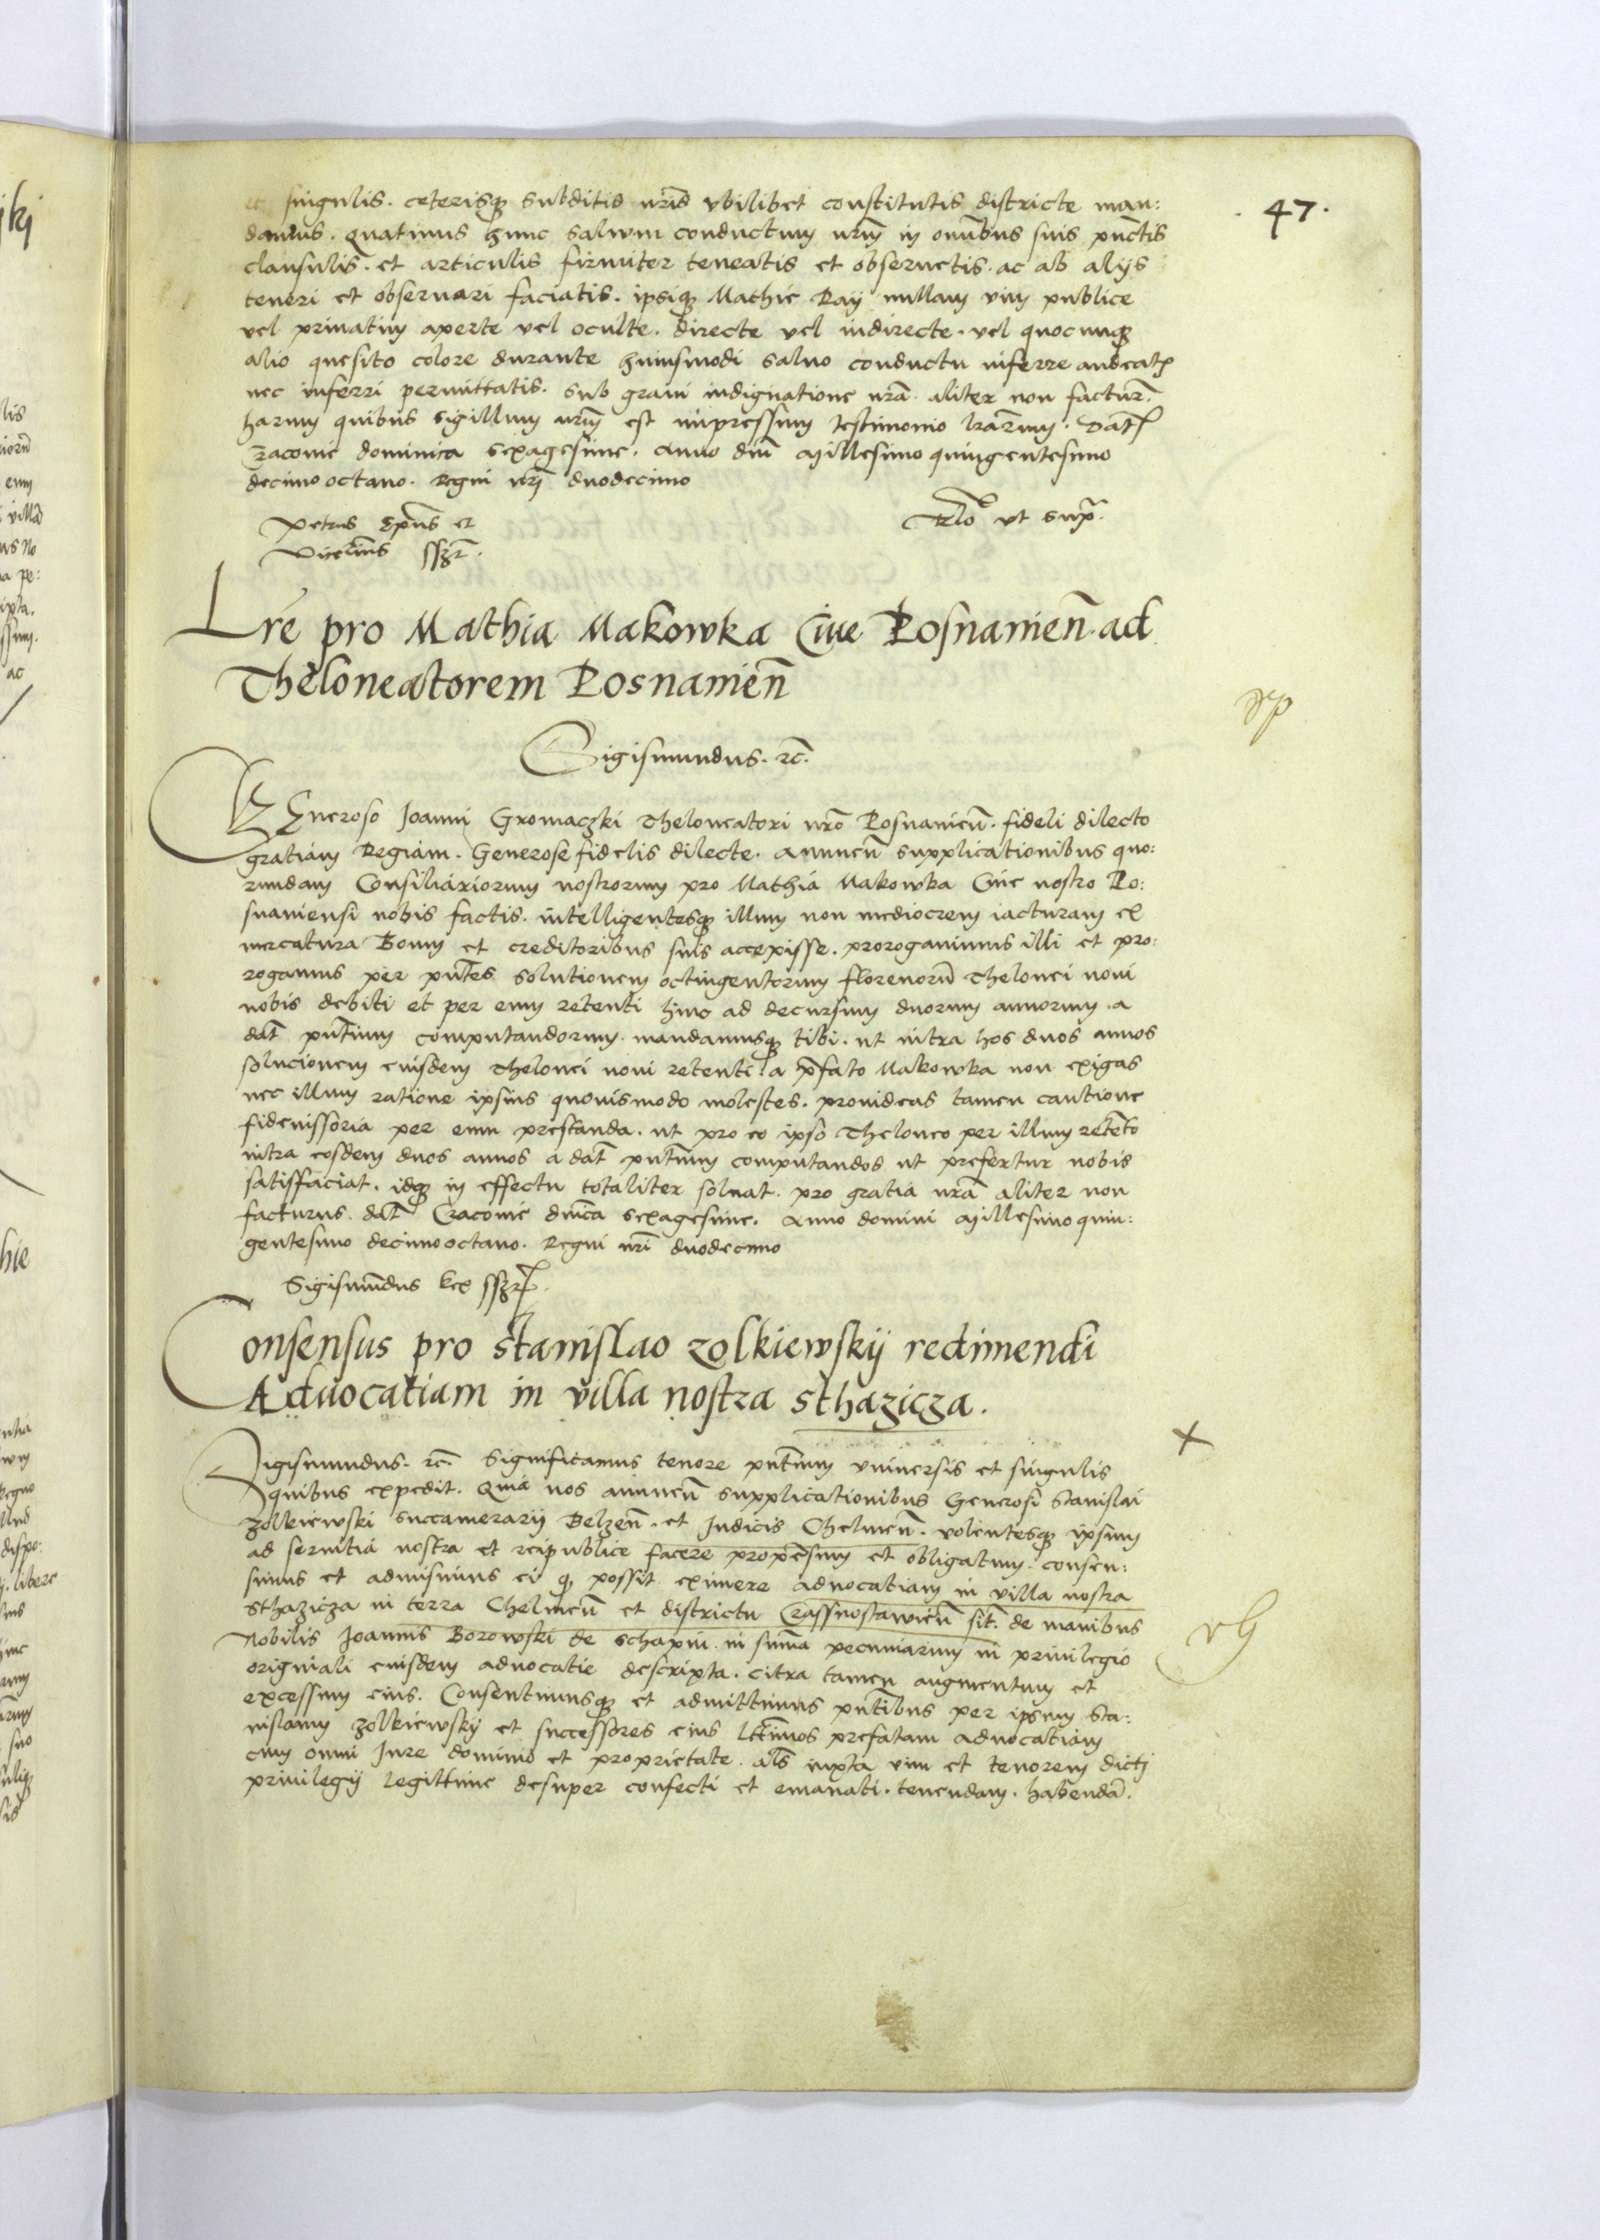 47.
et singulis. ceterisq3 subditis nr̄is vbilibet constitutis districte man:
damus. quatinus hunc saluum conductum nr̄m in omnibus suis punctis
clausulis. et articulis firmiter teneatis et obseruetis. ac ab alijs
teneri et obseruari faciatis. ipsiq3 Mathie Raij nullam vim publice
vel priuatim aperte vel oculte. directe vel indirecte. vel quocumq3
alio quesito colore durante huiusmodi saluo conductu inferre audeatis
nec inferri permittatis. sub graui indignatione nr̄a aliter non factur̄.
harum quibus sigillum nr̄m est impressum testimonio lr̄arum. Dat̄
Cracouie dominica sexagesime. Anno dn̄i Millesimo quingentesimo
decimo octauo. Regni nr̄i duodecimo
Petrus Ep̄us et
Vicecan̄us sszt.
Rl̄o vt sup̄.
Lr̄e pro Mathia Makowka Ciue Posnanien̄ ad
Theloneatorem Posnanien̄
dp
Sigismundus. rc̄.
Generoso Joanni Gromaczki Theloneatori nr̄o Posnanien̄. fideli dilecto
gratiam Regiam. Generose fidelis dilecte. Annuen̄ supplicationibus quo:
rumdam Consiliariorum nostrorum pro Mathia Makowka Ciue nostro Po:
snaniensi nobis factis. intelligentesq3 illum non mediocrem iacturam ex
mercatura Boum et creditoribus suis accepisse. prorogauimus illi et pro:
rogamus per pn̄tes solutionem octingentorum florenoru̅ Thelonei noui
nobis debiti et per eum retenti hinc ad decursum duorum annorum. a
dat̄ pn̄tium computandorum. mandamusq3 tibi. ut intra hos duos annos
solucionem eiusdem Thelonei noui retenti a p̄fato Makowka non exigas
nec illum ratione ipsius quouismodo molestes. prouideas tamen cautione
fideiussoria per eum prestanda. ut pro eo ipso Theloneo per illum retento
intra eosdem duos annos a dat̄ pn̄tium computandos ut prefertur nobis
satisfaciat. idq3 in effectu totaliter soluat. pro gratia nr̄a aliter non
facturus. dat̄ Cracouie dn̄ica sexagesime. Anno domini Millesimo quin:
gentesimo decimo octauo. Regni nr̄i duodecimo
Sigismu̅dus Rex sszt.
Consensus pro Stanislao Zolkiewskij redimendi
Aduocatiam in villa nostra Sthazicza.
x
Sigismundus. rc̄. Significamus tenore pn̄tium vniuersis et singulis
quibus expedit. Quia nos annuen̄ supplicationibus Generosi Stanislai
Zolkiewski succamerarij Belzen̄. et Judicis Chelmen̄. volentesq3 ipsum
ad seruitia nostra et reipublice facere prope̅sum et obligatum. consen:
simus et admisimus ei q3 possit eximere aduocatiam in villa nostra
Sthazicza in terra Chelmen̄ et districtu Crassnostawien̄ sit̄. de manibus
Nobilis Joannis Borowski de Schapin in sum̄a pecuniarum in priuilegio
originali eiusdem aduocatie descripta. citra tamen augmentum et
excessum eius. Consentimusq3 et admittimus pn̄tibus per ipsum Sta:
nislaum Zolkiewskij et successores eius ltt̄imos prefatam aduocatiam
cum omni Jure dominio et proprietate. al̄s iuxta vim et tenorem dicti
priuilegij legittime desuper confecti et emanati. tenendam. habenda̅.